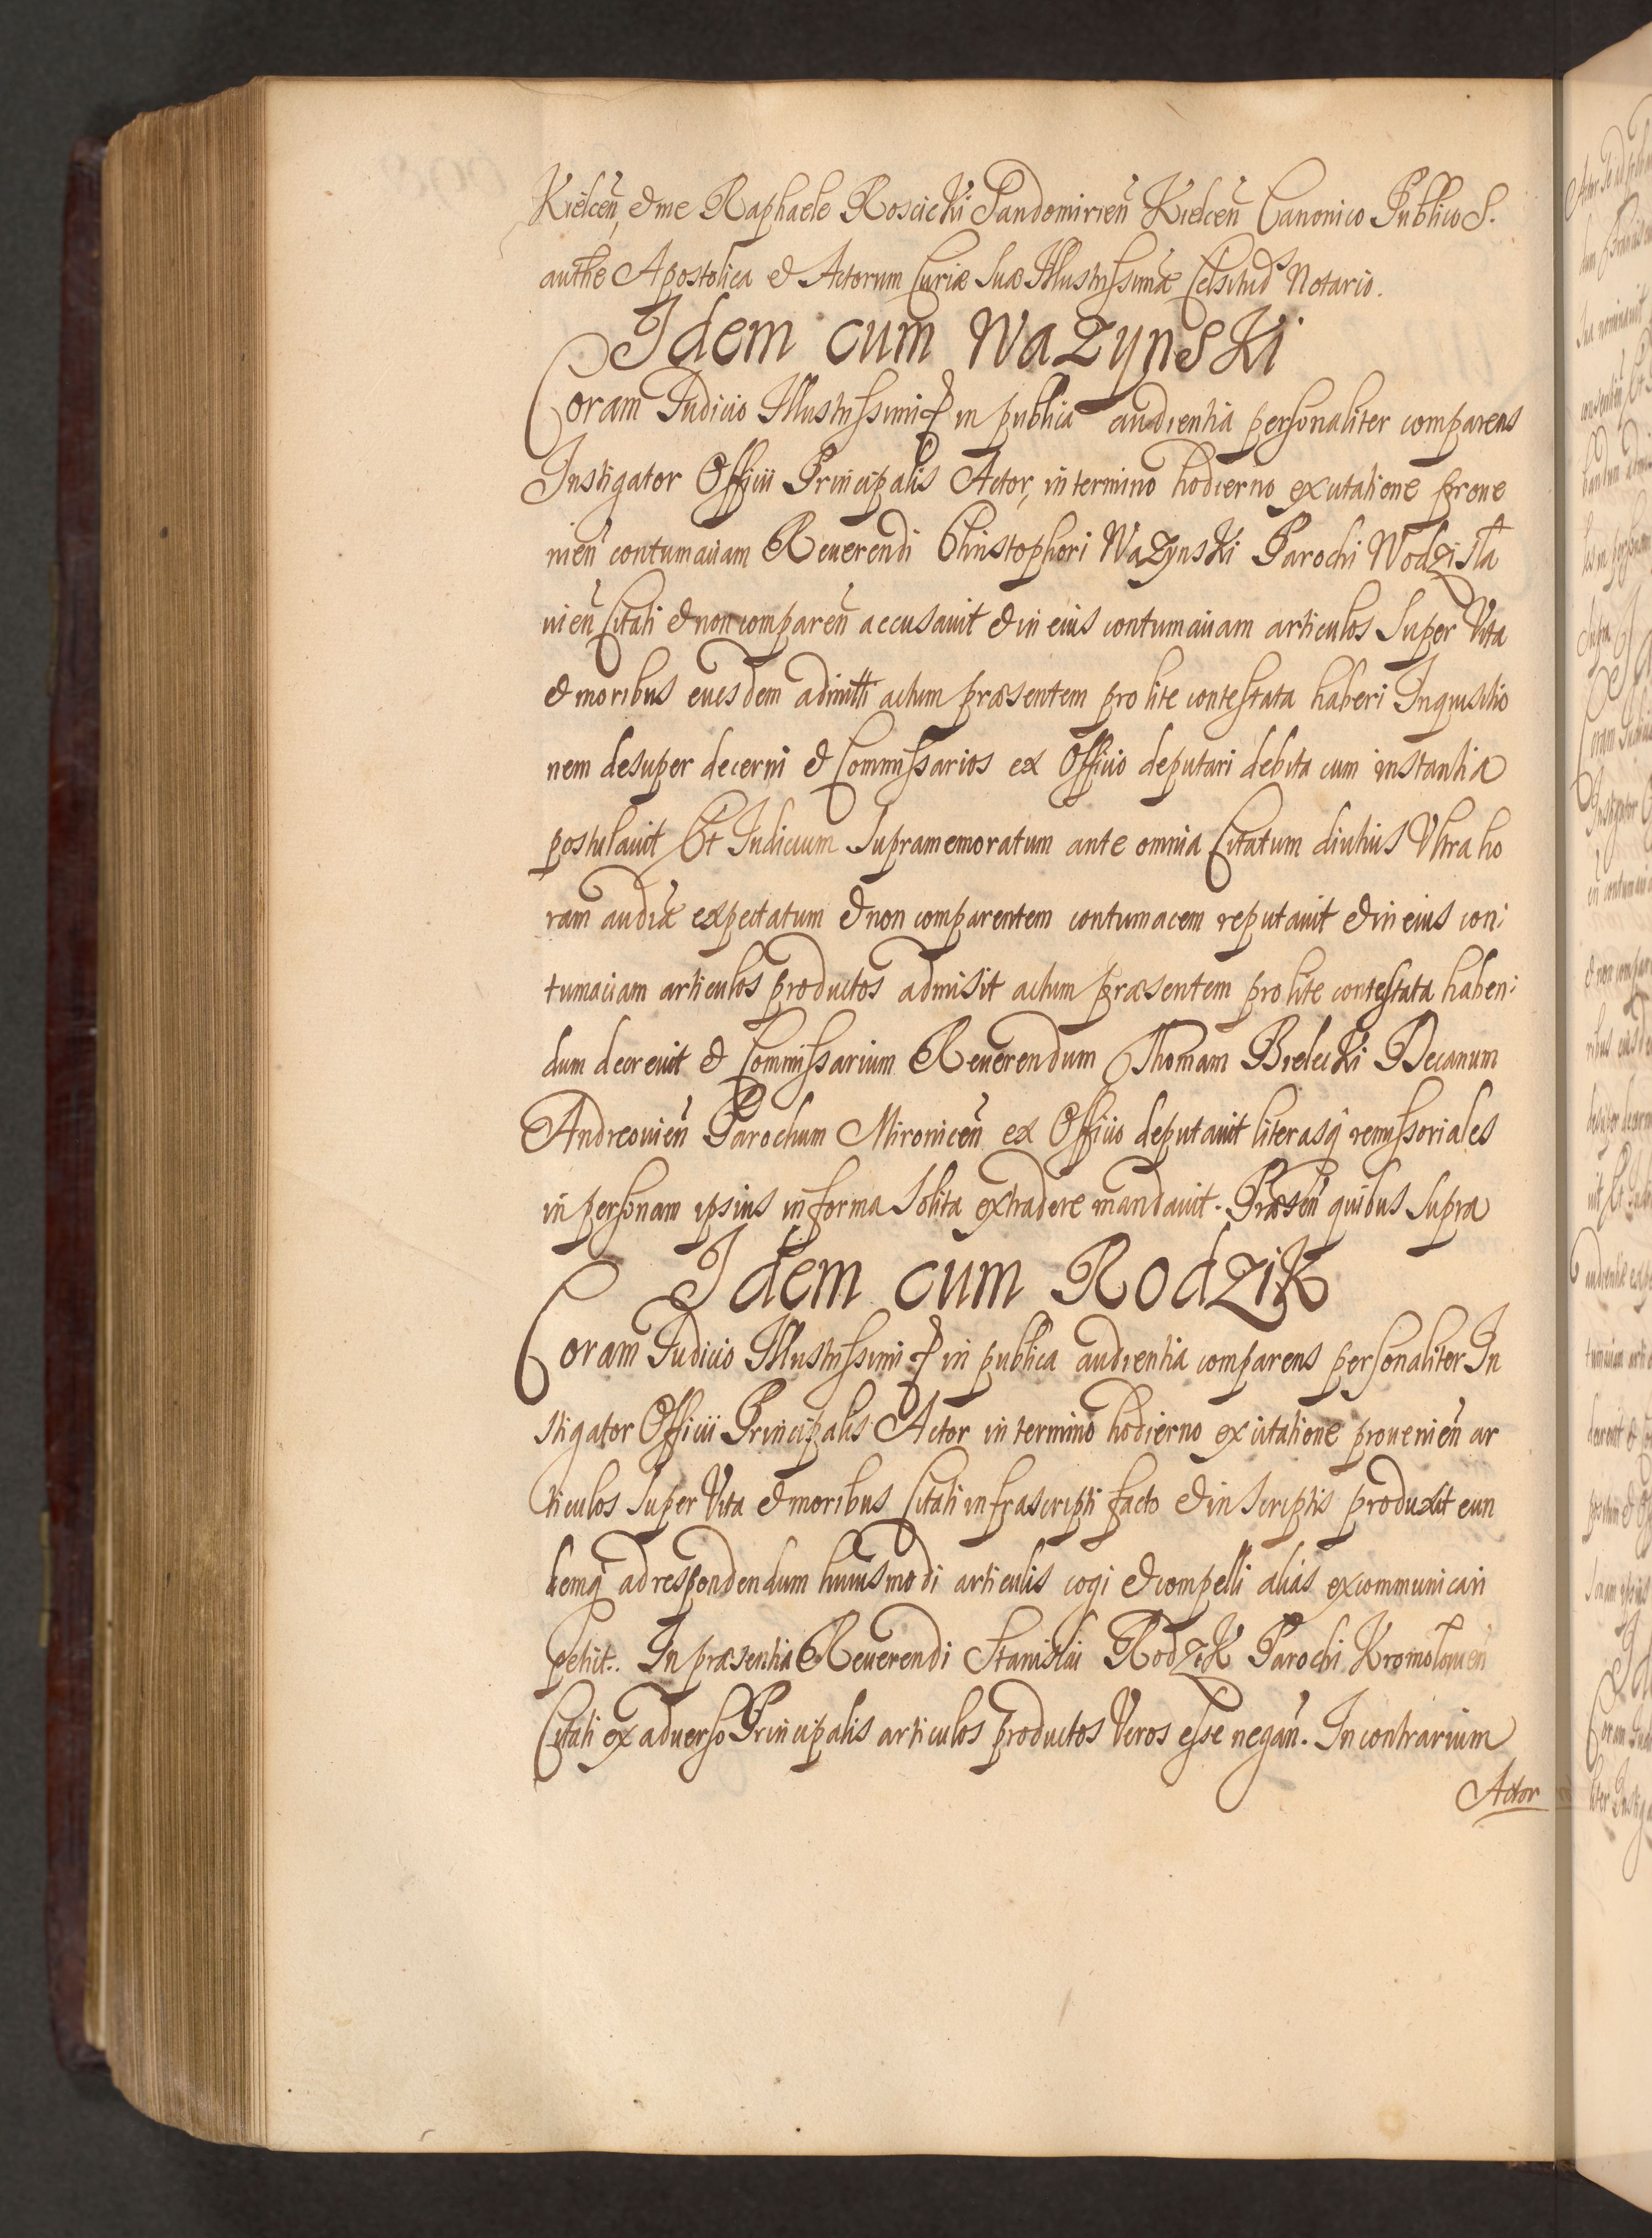 Kielceñ, & me Raphaele Roscicki Sandomirieñ Kielceñ Canonico Publico S.
authe Apostolica & Actorum Curiæ Suæ Illustrissimæ Celsitud Notario.
Idem cum Wazynski
Coram Iudicio Illustrissimi in publica audientia personaliter comparens
Instigator Officii Principalis Actor, in termino hodierno ex citatione prove
nieñ contumaciam Reverendi Christophori Wazynski Parochi Wodzisła
vieñ Citati & non compareñ accusavit & in eius contumaciam articulos super Vita
& moribus eiusdem admitti actum præsentem pro lite contestata haberi Inquisitio
nem desuper decerni & Commissarios ex Officio deputari debita cum instantia
postulavit Et Iudicium Supramemoratum ante omnia Citatum diutius Ultra ho
ram audiæ expectatum & non comparentem contumacem reputavit & in eius con:
tumaciam articulos productos admisit actum præsentem pro lite contestata haben:
dum decrevit & Commissarium Reverendum Thomam Bielecki Decanum
Andreovieñ Parochum Mironiceñ ex Officio deputavit literasq̃ remissoriales
in personam ipsius in forma Solita extradere mandavit. Præseñ quibus supra
Idem cum Rodzik
Coram Iudicio Illustrissimi in publica audientia comparens personaliter In
stigator Officii Principalis Actor in termino hodierno ex citatione provenieñ ar
ticulos super Vita & moribus Citati infrascripti facto & in scriptis produxit eun
demq̃ ad respondendum huiusmodi articulis cogi & compelli alias excommunicari
petiit. In præsentia Reverendi Stanislai Rodzik Parochi Kromołovieñ
Citati ex adverso Principalis articulos productos Veros esse negañ. In contrarium
Actor